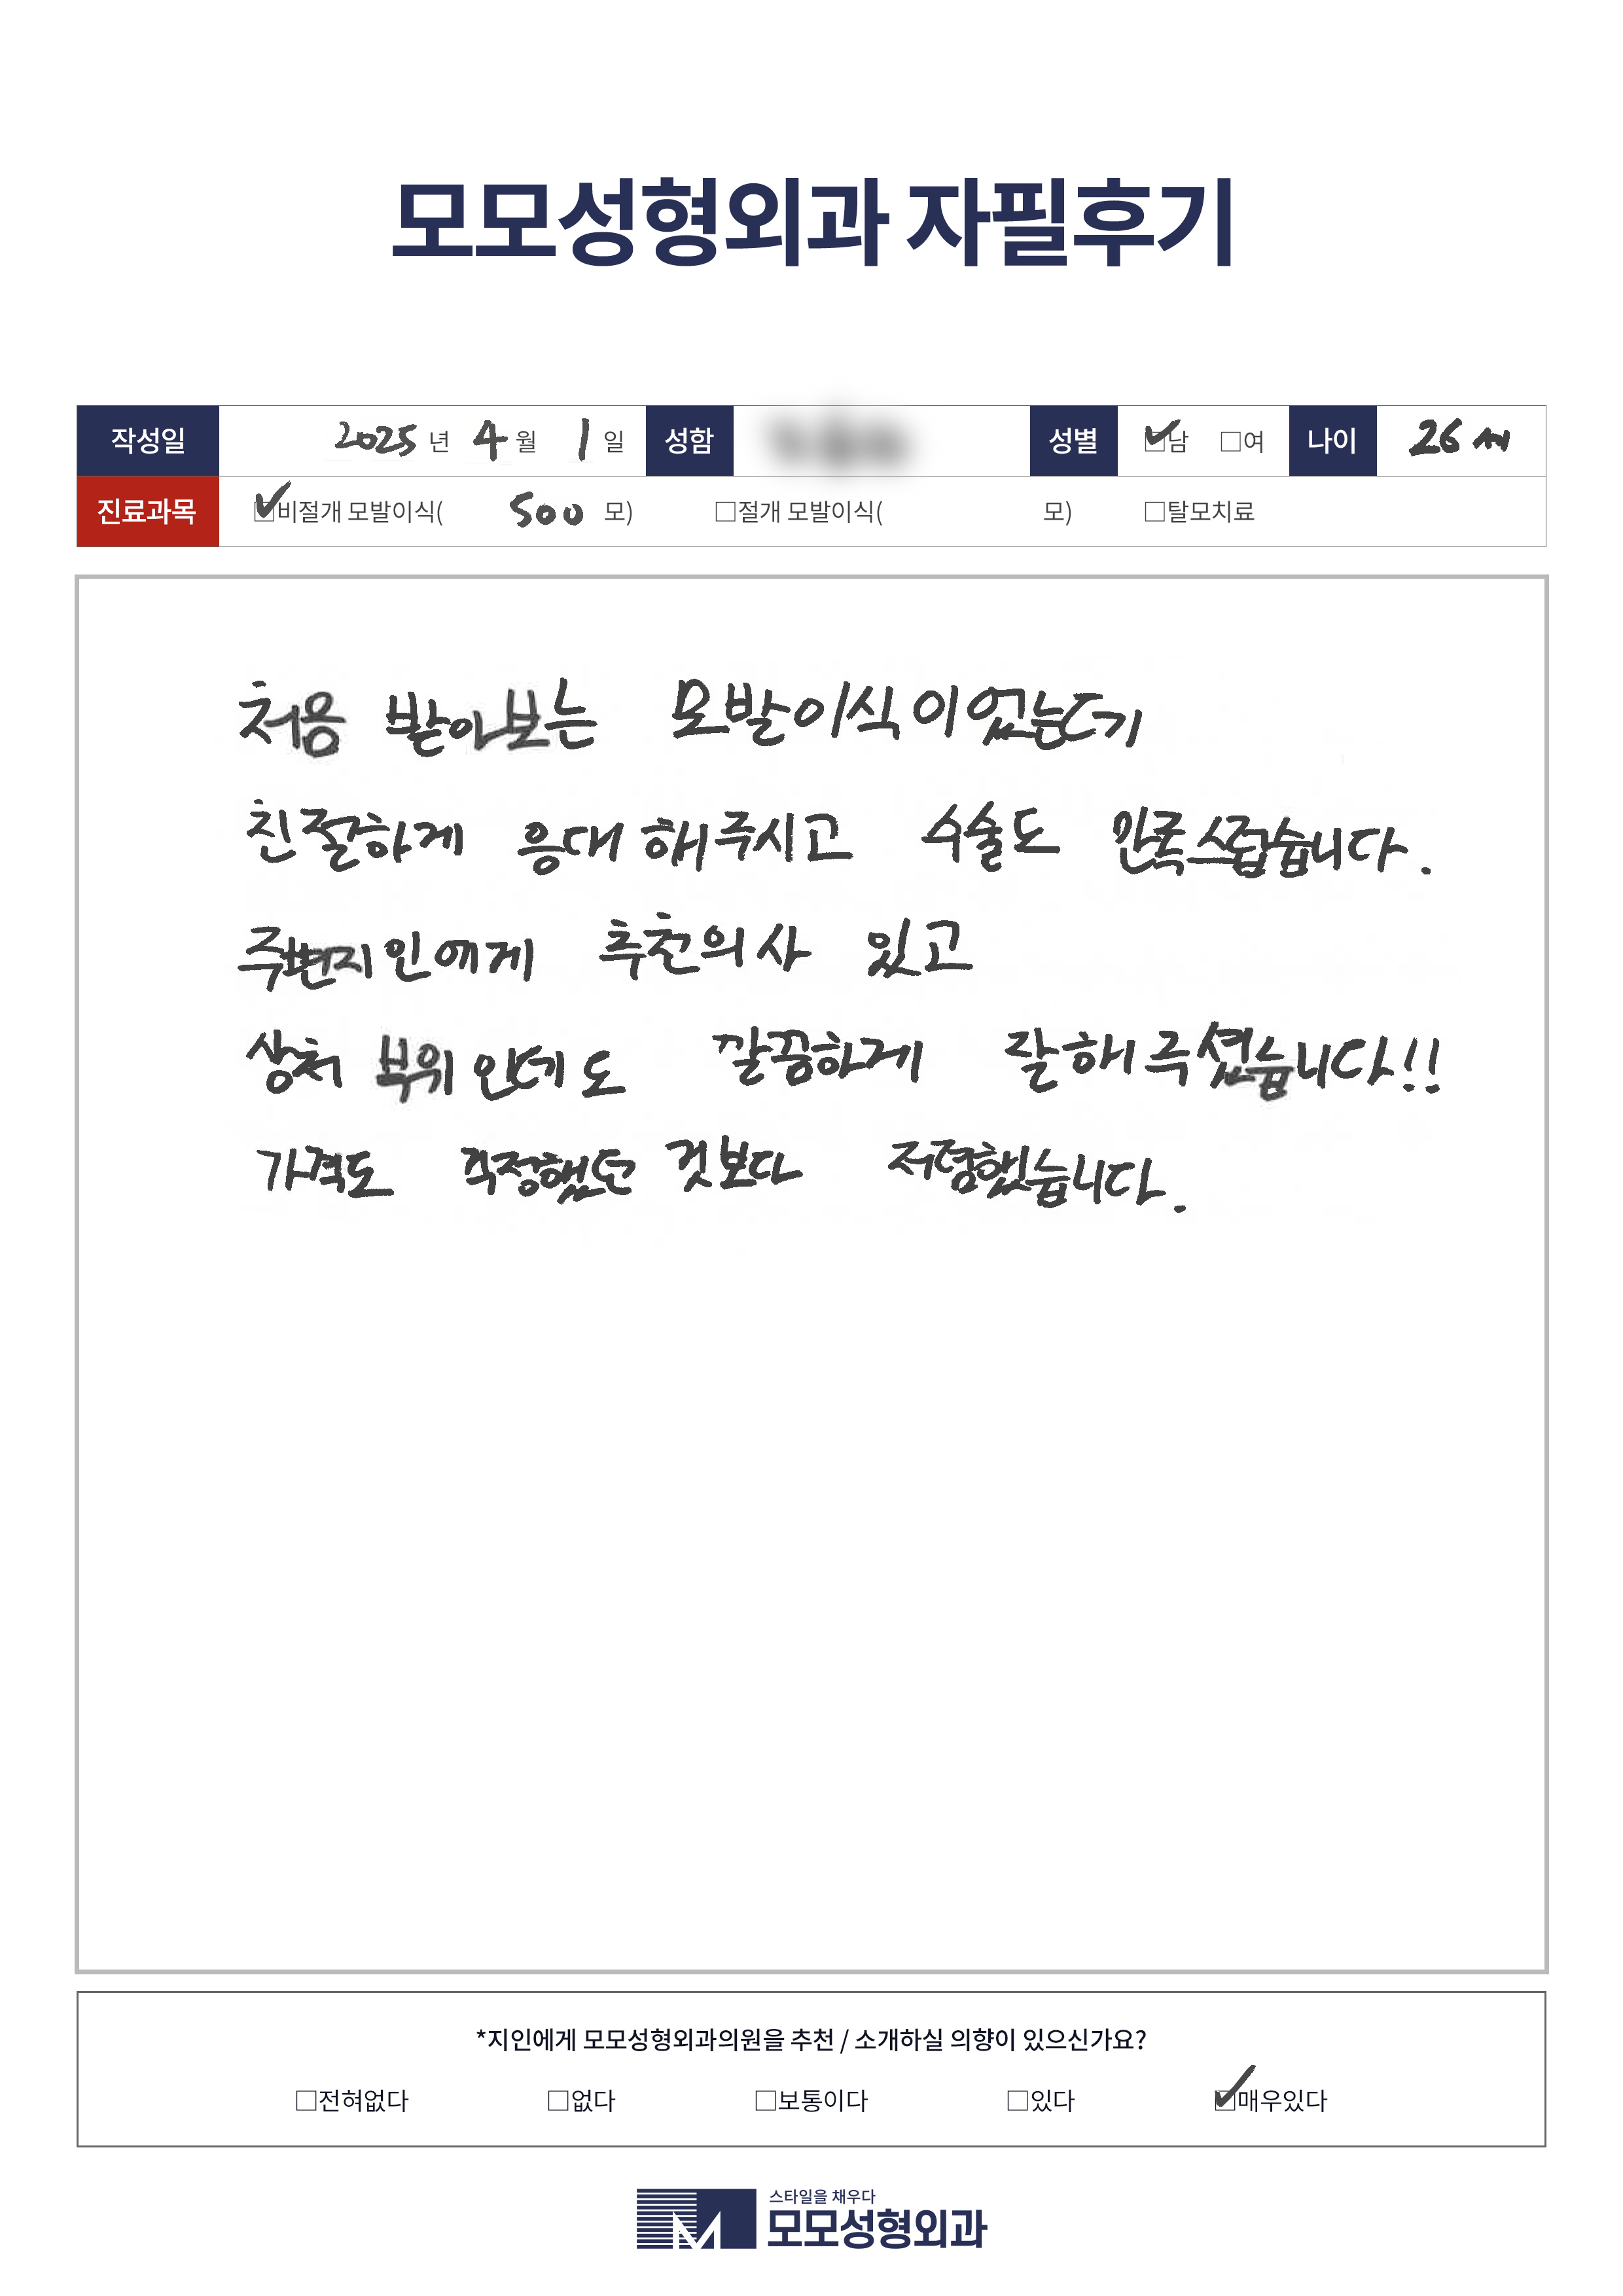 모모성형외과 자필후기
작성일 2025 년 4 월 1 일 성함 성별 ☑남 □여 나이 26 세
진료과목 ☑비절개 모발이식( 500 모) □절개 모발이식( 모) □탈모치료
처음 받아보는 모발이식이었는데
친절하게 응대해주시고 수술도 만족스럽습니다.
주변지인에게 추천의사 있고
상처 부위인데도 깔끔하게 잘해주셨습니다!!
가격도 걱정했던 것보다 저렴했습니다.
*지인에게 모모성형외과의원을 추천 / 소개하실 의향이 있으신가요?
□전혀없다 □없다 □보통이다 □있다 ☑매우있다
스타일을 채우다
모모성형외과